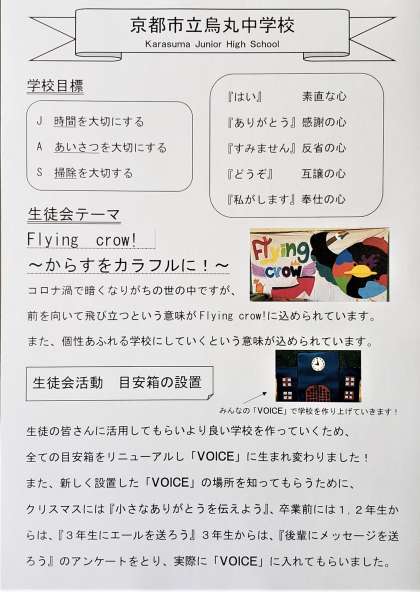 京都市立烏丸中学校
Karasuma Junior High School
学校目標
J 時間を大切にする
A あいさつを大切にする
S 掃除を大切する
『はい』 素直な心
『ありがとう』感謝の心
『すみません』反省の心
『どうぞ』 互譲の心
『私がします』奉仕の心
生徒会テーマ
Flying crow!
～からすをカラフルに！～
Flying
crow
コロナ渦で暗くなりがちの世の中ですが、
前を向いて飛び立つという意味がFlying crow!に込められています。
また、個性あふれる学校にしていくという意味が込められています。
生徒会活動 目安箱の設置
みんなの「VOICE」で学校を作り上げていきます！
生徒の皆さんに活用してもらいより良い学校を作っていくため、
全ての目安箱をリニューアルし「VOICE」に生まれ変わりました！
また、新しく設置した「VOICE」の場所を知ってもらうために、
クリスマスには『小さなありがとうを伝えよう』、卒業前には１，２年生か
らは、『３年生にエールを送ろう』３年生からは、『後輩にメッセージを送
ろう』のアンケートをとり、実際に「VOICE」に入れてもらいました。